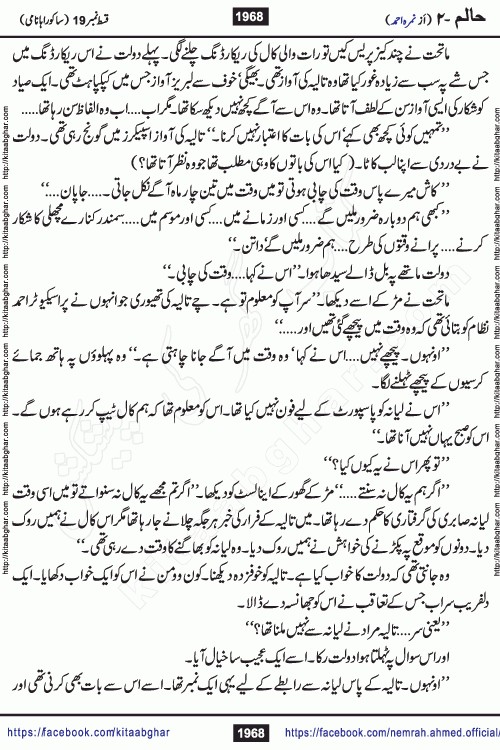 حالم -۲ (از نمرہ احمد)
1968
قسط نمبر 19 (ساکورا ہانامی)
ماتحت نے چند کیز پریس کیں تو رات والی کال کی ریکارڈنگ چلنے لگی۔ پہلے دولت نے اس ریکارڈنگ میں
جس شے پہ سب سے زیادہ غور کیا تھا وہ تالیہ کی آواز تھی۔ بھیگی، خوف سے لبریز آواز جس میں کپکپاہٹ تھی۔ ایک صیاد
کو شکار کی ایسی آواز سن کے لطف آتا تھا۔ وہ اس سے آگے کچھ نہیں دیکھ سکا تھا۔ مگر اب....اب وہ الفاظ سن رہا تھا.....
”تمہیں کوئی کچھ بھی کہے‘ اس کی بات کا اعتبار نہیں کرنا۔“ تالیہ کی آواز اسپیکرز میں گونج رہی تھی۔ دولت
نے بے دردی سے اپنا لب کاٹا۔ (کیا اس کی باتوں کا وہی مطلب تھا جو وہ نظر آتا تھا؟)
”کاش میرے پاس وقت کی چابی ہوتی تو میں وقت میں تین چار ماہ آگے نکل جاتی۔....جاپان....“
”کبھی ہم دوبارہ ضرور ملیں گے....کسی اور زمانے میں....کسی اور موسم میں.....سمندر کنارے مچھلی کا شکار
کرتے....پرانے وقتوں کی طرح....ہم ضرور ملیں گے‘ داتن۔“
دولت ماتھے پہ بل ڈالے سیدھا ہوا۔ ”اس نے کہا....وقت کی چابی۔“
ماتحت نے مڑ کے اسے دیکھا۔ ”سر آپ کو معلوم تو ہے۔ چے تالیہ کی تھیوری جو انہوں نے پراسیکیوٹر احمد
نظام کو بتائی تھی کہ وہ وقت میں پیچھے گئی تھیں اور.....“
”اونہوں۔ پیچھے نہیں....اس نے کہا‘ وہ وقت میں آگے جانا چاہتی ہے۔“ وہ پہلوؤں پہ ہاتھ جمائے
کرسیوں کے پیچھے ٹہلنے لگا۔
”اس نے لیانہ کو پاسپورٹ کے لیے فون نہیں کیا تھا۔ اس کو معلوم تھا کہ ہم کال ٹیپ کر رہے ہوں گے۔
اس کو صبح یہاں نہیں آنا تھا۔“
”تو پھر اس نے یہ کیوں کیا؟“
”اگر ہم یہ کال نہ سنتے....“ مڑ کے گھور کے اینالسٹ کو دیکھا۔ ”اگر تم مجھے یہ کال نہ سنواتے تو میں اسی وقت
لیانہ صابری کی گرفتاری کا حکم دے رہا تھا۔ میں تالیہ کے فرار کی خبر ہر جگہ چلانے جا رہا تھا مگر اس کال نے ہمیں روک
دیا۔ دونوں کو موقع پہ پکڑنے کی خواہش نے ہمیں روک دیا۔ وہ لیانہ کو بھاگنے کا وقت دے رہی تھی۔“
وہ جانتی تھی کہ دولت کا خواب کیا ہے۔ تالیہ کو خوفزدہ دیکھنا۔ کون وومن نے اس کو ایک خواب دکھایا۔ ایک
دلفریب سراب جس کے تعاقب نے اس کو جھانسہ دے ڈالا۔
”یعنی سر....تالیہ مراد نے لیانہ سے نہیں ملنا تھا؟“
اور اس سوال پہ ٹہلتا ہوا دولت رکا۔ اسے ایک عجیب سا خیال آیا۔
”اونہوں۔ تالیہ کے پاس لیانہ سے رابطے کے لیے یہی ایک نمبر تھا۔ اسے اس سے بات بھی کرنی تھی اور
https://facebook.com/kitaabghar
1968
https://facebook.com/nemrah.ahmed.official/
http://kitaabghar.com